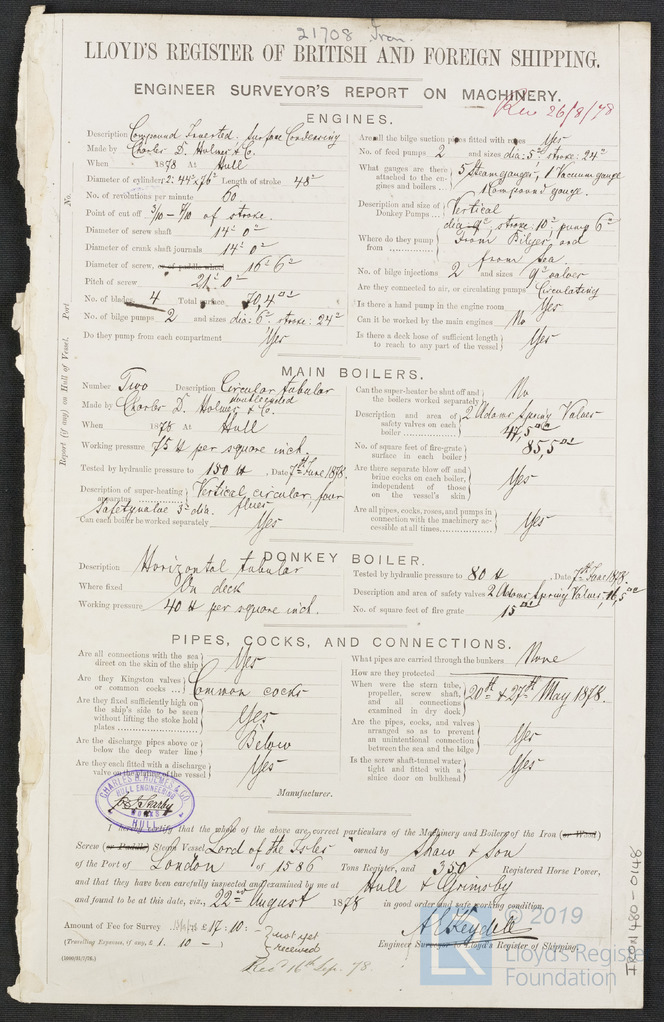 21708 Iron.
LLOYD'S REGISTER OF BRITISH AND FOREIGN SHIPPING.
ENGINEER SURVEYOR'S REPORT ON MACHINERY.
Rec 26/8/78
ENGINES.
Description Compound Inverted Surface Condensing
Made by Charles D. Holmes & C.
When 1878 At Hull
Diameter of cylinders 2: 44" x 76" Length of stroke 48"
No. of revolutions per minute 60
Point of cut off 3/10 - 7/10 of stroke.
Diameter of screw shaft 14" 0"
Diameter of crank shaft journals 14" 0"
Diameter of screw, or of paddle wheel 16" 6"
Pitch of screw 21" 0"
No. of blades 4 Total surface 70,4
No. of bilge pumps 2 and sizes dia: 6" stroke: 24"
Do they pump from each compartment Yes
Are all the bilge suction pipes fitted with roses Yes
No. of feed pumps 2 and sizes dia: 5" stroke: 24"
What gauges are there attached to the engines and boilers 5 Steam gauges, 1 Vacuum gauge 1 Compound gauge.
Description and size of Donkey Pumps Vertical dia 9", stroke 10", pump 6"
Where do they pump from From Bilges, and from sea.
No. of bilge injections 2 and sizes 9" valves
Are they connected to air, or circulating pumps Circulating
Is there a hand pump in the engine room Yes
Can it be worked by the main engines No
Is there a deck hose of sufficient length to reach to any part of the vessel Yes
MAIN BOILERS.
Number Two Description Circular tubular
Made by Charles D. Holmes & Co.
When 1878 At Hull
Working pressure 75 lb per square inch.
Tested by hydraulic pressure to 150 lb. Date 7th June 1878.
Description of super-heating apparatus Vertical circular, four flues
Safety valve 3" dia.
Can each boiler be worked separately Yes
Can the super-heater be shut off and the boilers worked separately No
Description and area of safety valves on each boiler 2 Adams Spring Valves 44,5
No. of square feet of fire-grate surface in each boiler 85,5
Are there separate blow off and brine cocks on each boiler, independent of those on the vessel's skin Yes
Are all pipes, cocks, roses, and pumps in connection with the machinery accessible at all times Yes
DONKEY BOILER.
Description Horizontal tubular
Where fixed On deck
Working pressure 40 lb per square inch.
Tested by hydraulic pressure to 80 lb. Date 7th June 1878.
Description and area of safety valves 2 Adams Spring Valves,
No. of square feet of fire grate 15
PIPES, COCKS, AND CONNECTIONS.
Are all connections with the sea direct on the skin of the ship Yes
Are they Kingston valves or common cocks Common cocks
Are they fixed sufficiently high on the ship's side to be seen without lifting the stoke hold plates Yes
Are the discharge pipes above or below deep water line Below
Are they each fitted with a discharge valve on the plating of the vessel Yes
What pipes are carried through the bunkers None
How are they protected
When were the stern tube, propeller, screw shaft, and all connections examined in dry dock 20th & 27th May 1878.
Are the pipes, cocks, and valves arranged so as to prevent an unintentional connection between the sea and the bilge Yes
Is the screw shaft-tunnel water tight and fitted with a sluice door on bulkhead Yes
CHARLES D. HOLMES & CO.
HULL ENGINEERING
WORKS
HULL
Manufacturer.
I hereby certify that the whole of the above are correct particulars of the Machinery and Boilers of the Iron (or Wood)
Screw (or Paddle) Steam Vessel Lord of the Isles owned by Shaw & Son
of the Port of London of 1586 Tons Register, and 350 Registered Horse Power,
and that they have been carefully inspected and examined by me at Hull & Grimsby
and found to be at this date, viz., 22nd August 1878 in good order and safe working condition.
Amount of Fee for Survey £17: 10: - not yet received
(Travelling Expenses, if any, £ 1. 10 - )
Engineer Surveyor to Lloyd's Register of Shipping
Rec 16th Sep. 78.
Report (if any) on Hull of Vessel. Port No.
IRON 480-0148
LR
© 2019
Lloyd's Register
Foundation